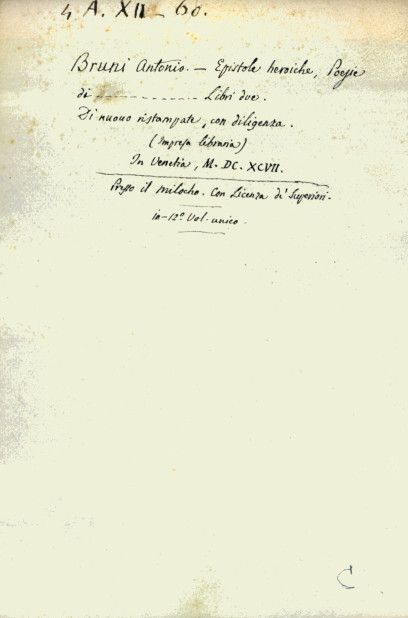 4 A. XII - 60.
Bruni Antonio. — Epistole heroiche, Poesie
di - - - - - - - - - - - - Libri due.
Di nuovo ristampate, con diligenza.
(Impresa libraria)
In Venetia, M. DC. XCVII.
Presso il Milocho. Con Licenza de' Superiori.
in-12º Vol. unico.
C